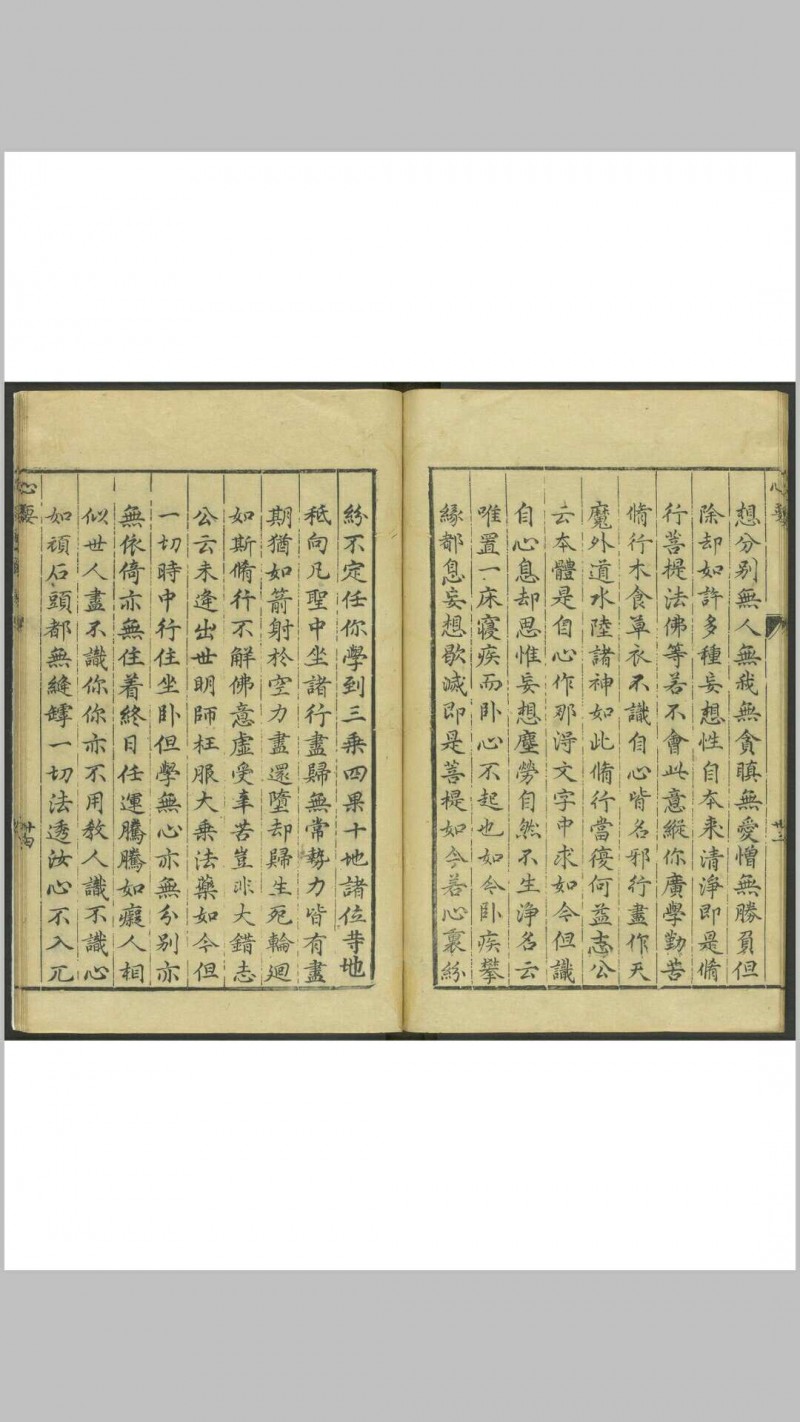 心要
廿三
想分别無人無我無貪瞋無愛憎無勝負但
除却如許多種妄想性自本來清淨即是脩
行菩提法佛等若不會此意縱你廣學勤苦
脩行木食草衣不識自心皆名邪行盡作天
魔外道水陸諸神如此脩行當復何益志公
云本體是自心作那淂文字中求如今但識
自心息却思惟妄想塵勞自然不生淨名云
唯置一床寑疾而卧心不起也如今卧疾攀
緣都息妄想歇滅即是菩提如今若心裏紛
紛不定任你學到三乗四果十地諸位等地
秪向凡聖中坐諸行盡歸無常勢力皆有盡
期猶如箭射於空力盡還墮却歸生死輪廻
如斯脩行不解佛意虚受辛苦豈非大錯志
公云未逢出世明師枉服大乗法藥如今但
一切時中行住坐卧但學無心亦無分别亦
無依倚亦無住着終日任運騰騰如癡人相
似世人盡不識你你亦不用教人識不識心
如頑石頭都無縫罅一切法透汝心不入兀
心要
廿四